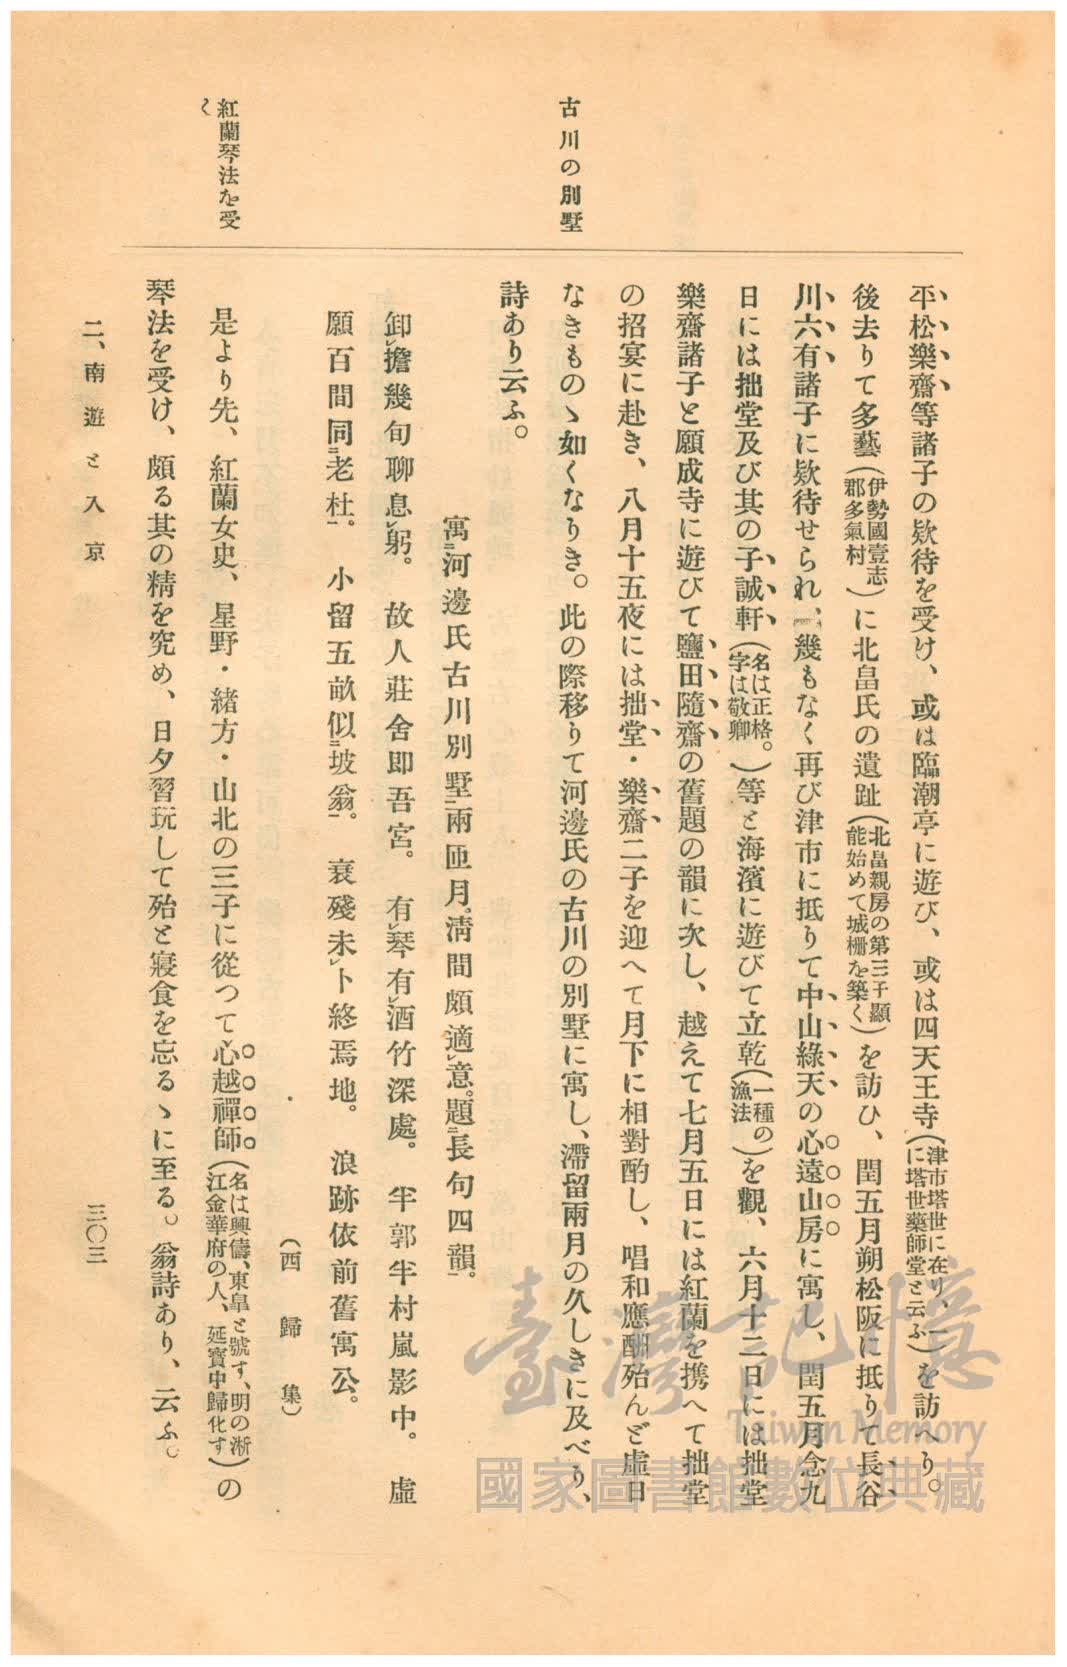 古川の別墅
紅蘭琴法を受
く
平松樂齋等諸子の欵待を受け、或は臨潮亭に遊び、或は四天王寺(津市塔世に在り、一に塔世藥師堂と云ふ)を訪へり。
後去りて多藝(伊勢國壹志郡多氣村)に北畠氏の遺趾(北畠親房の第三子顯能始めて城柵を築く)を訪ひ、閏五月朔松阪に抵りて長谷
川六有諸子に欵待せられ、幾もなく再び津市に抵りて中山綠天の心遠山房に寓し、閏五月念九
日には拙堂及び其の子誠軒(名は正格。字は敬卿)等と海濱に遊びて立乾(一種の漁法)を觀、六月十二日には拙堂
樂齋諸子と願成寺に遊びて鹽田隨齋の舊題の韻に次し、越えて七月五日には紅蘭を携へて拙堂
の招宴に赴き、八月十五夜には拙堂・樂齋二子を迎へて月下に相對酌し、唱和應酬殆んど虛日
なきものゝ如くなりき。此の際移りて河邊氏の古川の別墅に寓し、滯留兩月の久しきに及べり、
詩あり云ふ。
寓二河邊氏古川別墅一兩匝月。淸間頗適レ意。題二長句四韻一。
卸レ擔幾旬聊息レ躬。 故人莊舍即吾宮。 有レ琴有レ酒竹深處。 半郭半村嵐影中。 虛
願百間同二老杜一。 小留五畝似二坡翁一。 衰殘未レ卜終焉地。 浪跡依前舊寓公。
(西歸集)
是より先、紅蘭女史、星野・緒方・山北の三子に從つて心越禪師(名は興儔、東皐と號す、明の淅江金華府の人、延寶中歸化す)の
琴法を受け、頗る其の精を究め、日夕習玩して殆と寢食を忘るゝに至る。翁詩あり、云ふ。
二、南遊と入京
三〇三
臺灣記憶
Taiwan Memory
國家圖書館數位典藏